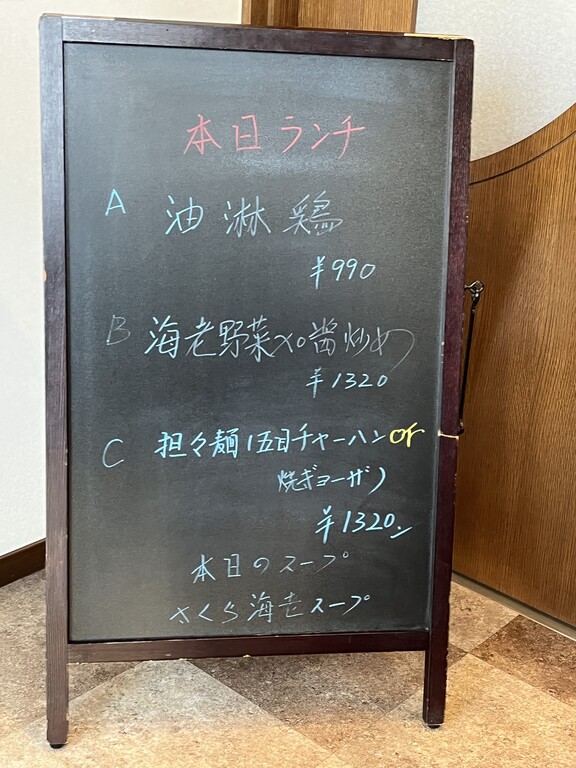 本日ランチ
A 油淋鶏
¥990
B 海老野菜XO醤炒め
¥1320
C 担々麺(五目チャーハン or
焼ギョーザ)
¥1320ン
本日のスープ
さくら海老スープ